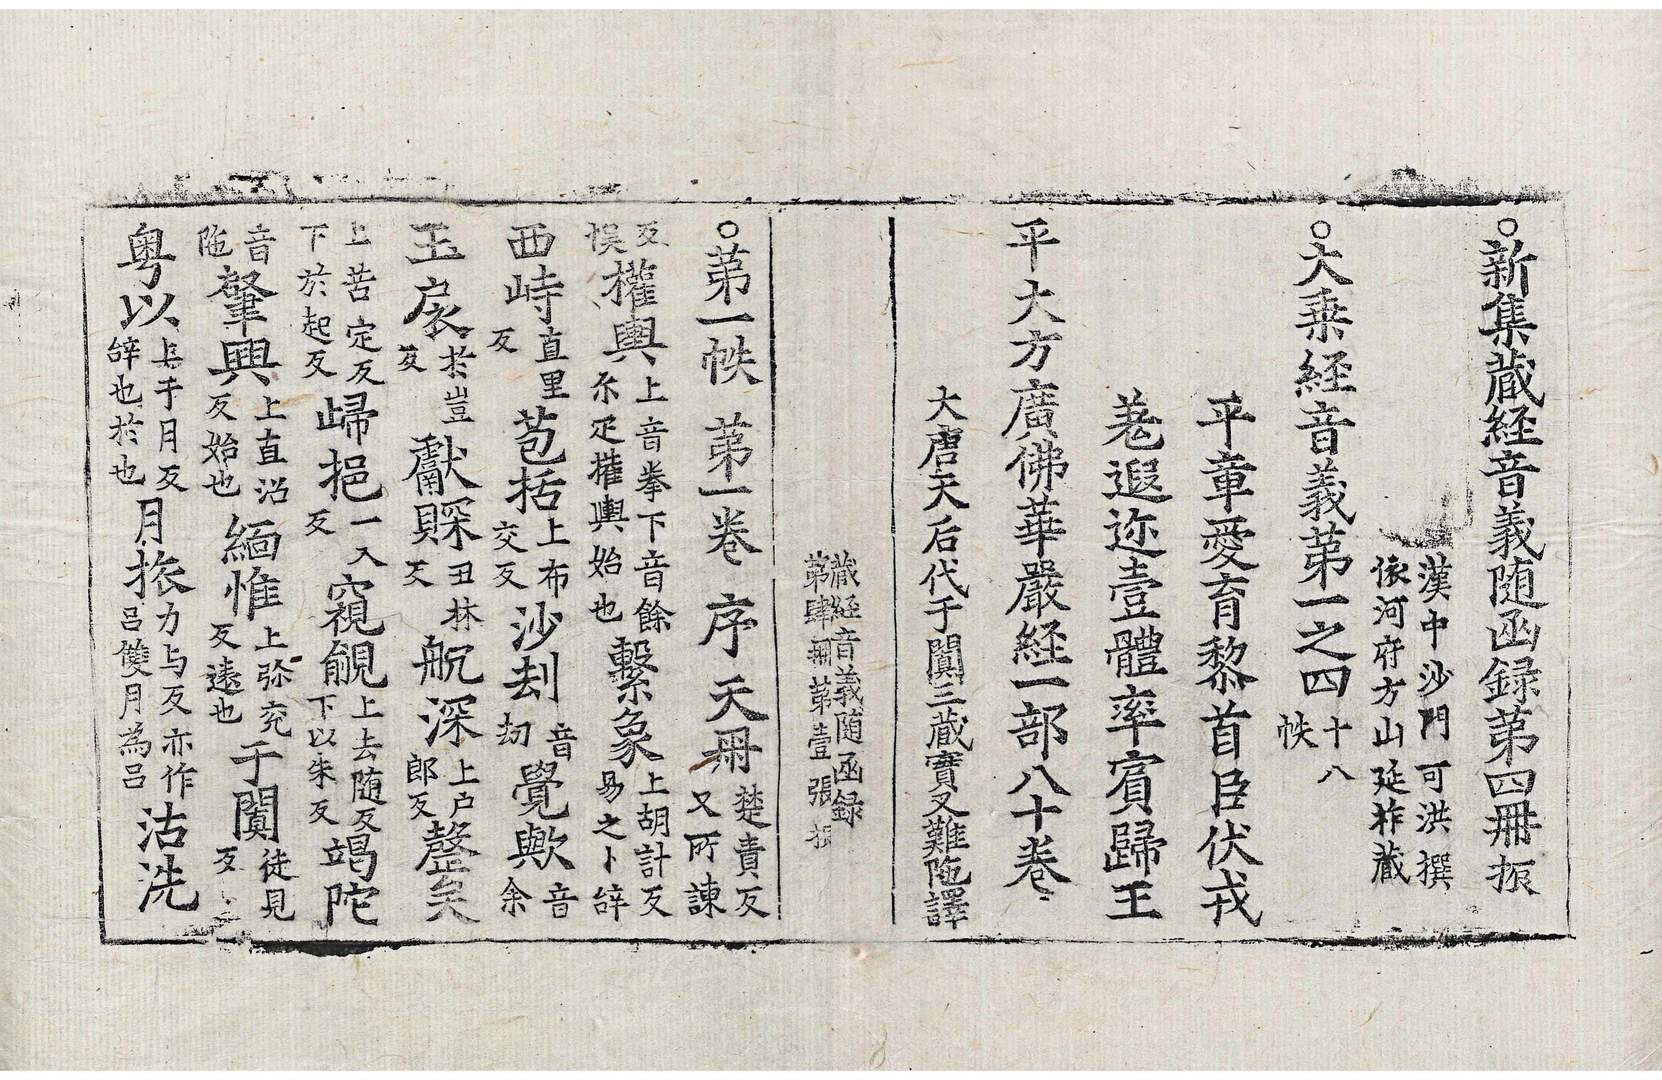 ○新集藏経音義随函録第四冊振
漢中沙門可洪撰
依河府方山延祚藏
○大乗経音義第一之四十八帙
平章愛育黎首臣伏戎
羌遐迩壹體率賓歸王
平大方廣佛華嚴経一部八十卷
大唐天后代于闐三藏實叉難陁譯
藏経音義随函録
第肆冊第壹張振
○第一帙 第一卷 序 天冊楚責反又所諫
反悮權輿上音拳下音餘尒疋攉輿始也繫象上胡計反易之卜辝
西峙直里反苞括上布交反沙刦音刧覺歟音余
玉扆於豈反獻賝丑林反航深上户郎反罄矣
上苦定反下於起反歸挹一入反窺覦上去随反下以朱反竭陀
音陁肈興上直沼反始也緬惟上弥兖反遠也于闐徒見反
粤以上于月反辝也於也月旅力与反亦作呂雙月為呂沽洗